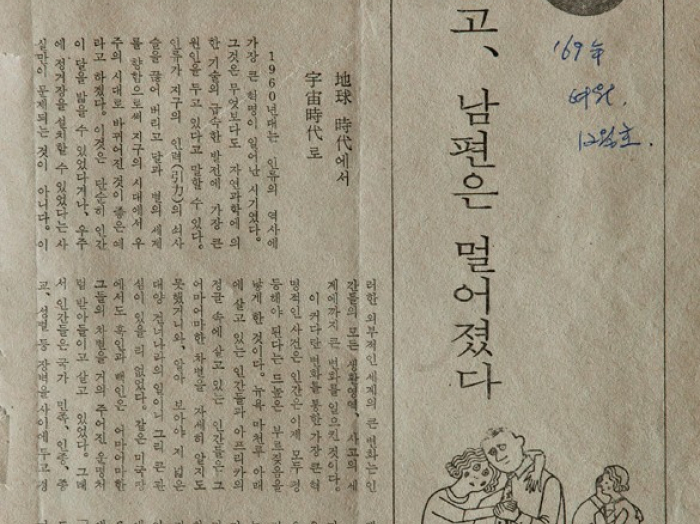 '69年
여원.
12월호.
고, 남편은 멀어졌다
地球 時代에서
宇宙時代로
1960년대는 인류의 역사에
가장 큰 혁명이 일어난 시기였다.
그것은 무엇보다도 자연과학에 의
한 기술의 급속한 발전에 가장 큰
원인을 두고 있다고 말할 수 있다.
인류가 지구의 인력(引力)의 쇠사
슬을 끊어 버리고 달과 별의 세계
를 향함으로써 지구의 시대에서 우
주의 시대로 바뀌어진 것이 좋은 예
라고 하겠다. 이것은 단순히 인간
이 달을 밟을 수 있었다거나, 우주
에 정거장을 설치할 수 있었다는 사
실만이 문제되는 것이 아니다. 이
러한 외부적인 세계의 큰 변화는 인
간들의 모든 생활영역, 사고의 세
계에까지 큰 변화를 일으킨 것이다.
이 커다란 변화를 통한 가장 큰 혁
명적인 사건은 인간은 이제 모두 평
등해야 된다는 드높은 부르짖음을
낳게 한 것이다. 뉴욕 마천루 아래
에 살고 있는 인간들과 아프리카의
정글 속에 살고 있는 인간들은 그
어마어마한 차별을 자세히 알지도
못했거니와, 알아 보아야 지 넓은
대양 건너 나라의 일이니 그리 큰 관
심이 있을 리 없었다. 같은 미국땅
에서도 흑인과 백인은 어마어마한
그들의 차별을 거의 주어진 운명처
럼 받아들이고 살고 있었다. 그래
서 인간들은 국가, 민족, 인종, 종
교, 성별 등 장벽을 사이에 두고